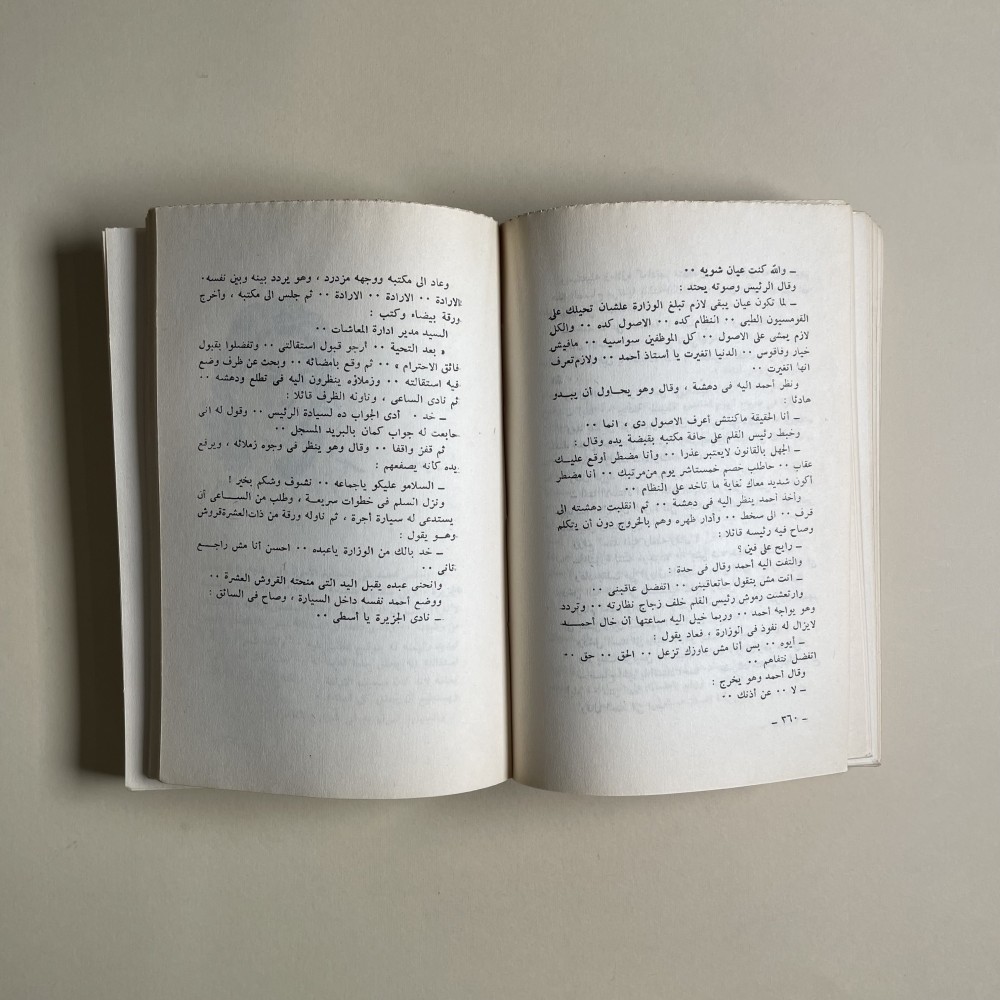 ـ والله كنت عيان شويه ٠٠
وقال الرئيس وصوته يحتد :
ـ لما تكون عيان يبقى لازم تبلغ الوزارة علشان تحيلك على
القومسيون الطبى ٠٠ النظام كده ٠٠ الاصول كده ٠٠ والكل
لازم يمشى على الاصول ٠٠ كل الموظفين سواسيه ٠٠ مافيش
خيار وفاقوس ٠٠ الدنيا اتغيرت يا أستاذ أحمد ٠٠ ولازم تعرف
انها اتغيرت ٠٠
ونظر أحمد اليه فى دهشة ، وقال وهو يحاول أن يبدو
هادئا :
ـ أنا الحقيقة ماكنتش أعرف الاصول دى ، انما ٠٠
وخبط رئيس القلم على حافة مكتبه بقبضة يده وقال :
ـ الجهل بالقانون لايعتبر عذرا ٠٠ وأنا مضطر أوقع عليك
عقاب ٠٠ حاطلب خصم خمستاشر يوم من مرتبك ٠٠ أنا مضطر
أكون شديد معاك لغاية ما تاخد على النظام ٠٠
وأخذ أحمد ينظر اليه فى دهشة ٠٠ ثم انقلبت دهشته الى
قرف ٠٠ الى سخط ٠٠ وأدار ظهره وهم بالخروج دون أن يتكلم
وصاح فيه رئيسه قائلا :
ـ رايح على فين ؟
والتفت اليه أحمد وقال فى حدة :
ـ انت مش بتقول حاتعاقبنى ٠٠ اتفضل عاقبنى ٠٠
وارتعشت رموش رئيس القلم خلف زجاج نظارته ٠٠ وتردد
وهو يواجه أحمد ٠٠ وربما خيل اليه ساعتها أن خال أحمد
لايزال له نفوذ فى الوزارة ، فعاد يقول :
ـ أيوه ٠٠ بس أنا مش عاوزك تزعل ٠٠ الحق ٠٠ حق ٠٠
اتفضل نتفاهم ٠٠
وقال أحمد وهو يخرج :
ـ لا ٠٠ عن أذنك ٠٠
ـ ٣٦٠ ـ
وعاد الى مكتبه ووجهه مزدرد ، وهو يردد بينه وبين نفسه٠
الارادة ٠٠ الارادة ٠٠ الارادة ٠٠ ثم جلس الى مكتبه ، وأخرج
ورقة بيضاء وكتب :
السيد مدير ادارة المعاشات ٠٠
« بعد التحية ٠٠ أرجو قبول استقالتى ٠٠ وتفضلوا بقبول
فائق الاحترام » ٠٠ ثم وقع بامضائه ٠٠ وبحث عن ظرف وضع
فيه استقالته ٠٠ وزملاؤه ينظرون اليه فى تطلع ودهشه ٠٠
ثم نادى الساعى ، وناوله الظرف قائلا :
ـ خد ٠ أدى الجواب ده لسيادة الرئيس ٠٠ وقول له انى
حابعت له جواب كمان بالبريد المسجل ٠٠
ثم قفز واقفا ٠٠ وقال وهو ينظر فى وجوه زملائه ، ويرفع
يده كأنه يصفعهم :
ـ السلامو عليكو ياجماعه ٠٠ نشوف وشكم بخير !
ونزل السلم فى خطوات سريعة ، وطلب من الساعى أن
يستدعى له سيارة أجرة ، ثم ناوله ورقة من ذات العشرة قروش
وهو يقول :
ـ خد بالك من الوزارة ياعبده ٠٠ احسن أنا مش راجع
تانى ٠٠
وانحنى عبده يقبل اليد التى منحته القروش العشرة ٠٠
ووضع أحمد نفسه داخل السيارة ، وصاح فى السائق :
ـ نادى الجزيرة يا أسطى ٠٠